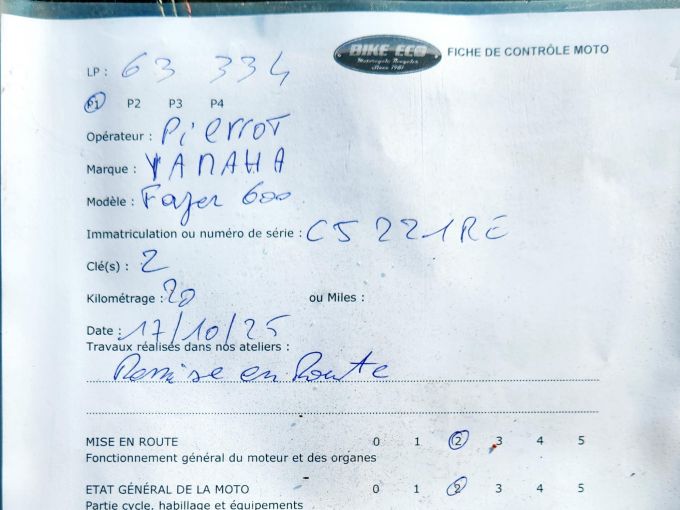 BIKE ECO
Motorcycle Recycler
Since 1981
FICHE DE CONTRÔLE MOTO
LP : 63 334
P1 P2 P3 P4
Opérateur : Pierrot
Marque : YAMAHA
Modèle : Fazer 600
Immatriculation ou numéro de série : C5 221RE
Clé(s) : 2
Kilométrage : 20 ou Miles :
Date : 17/10/25
Travaux réalisés dans nos ateliers :
Remise en Route
MISE EN ROUTE 0 1 2 3 4 5
Fonctionnement général du moteur et des organes
ETAT GÉNÉRAL DE LA MOTO 0 1 2 3 4 5
Partie cycle, habillage et équipements